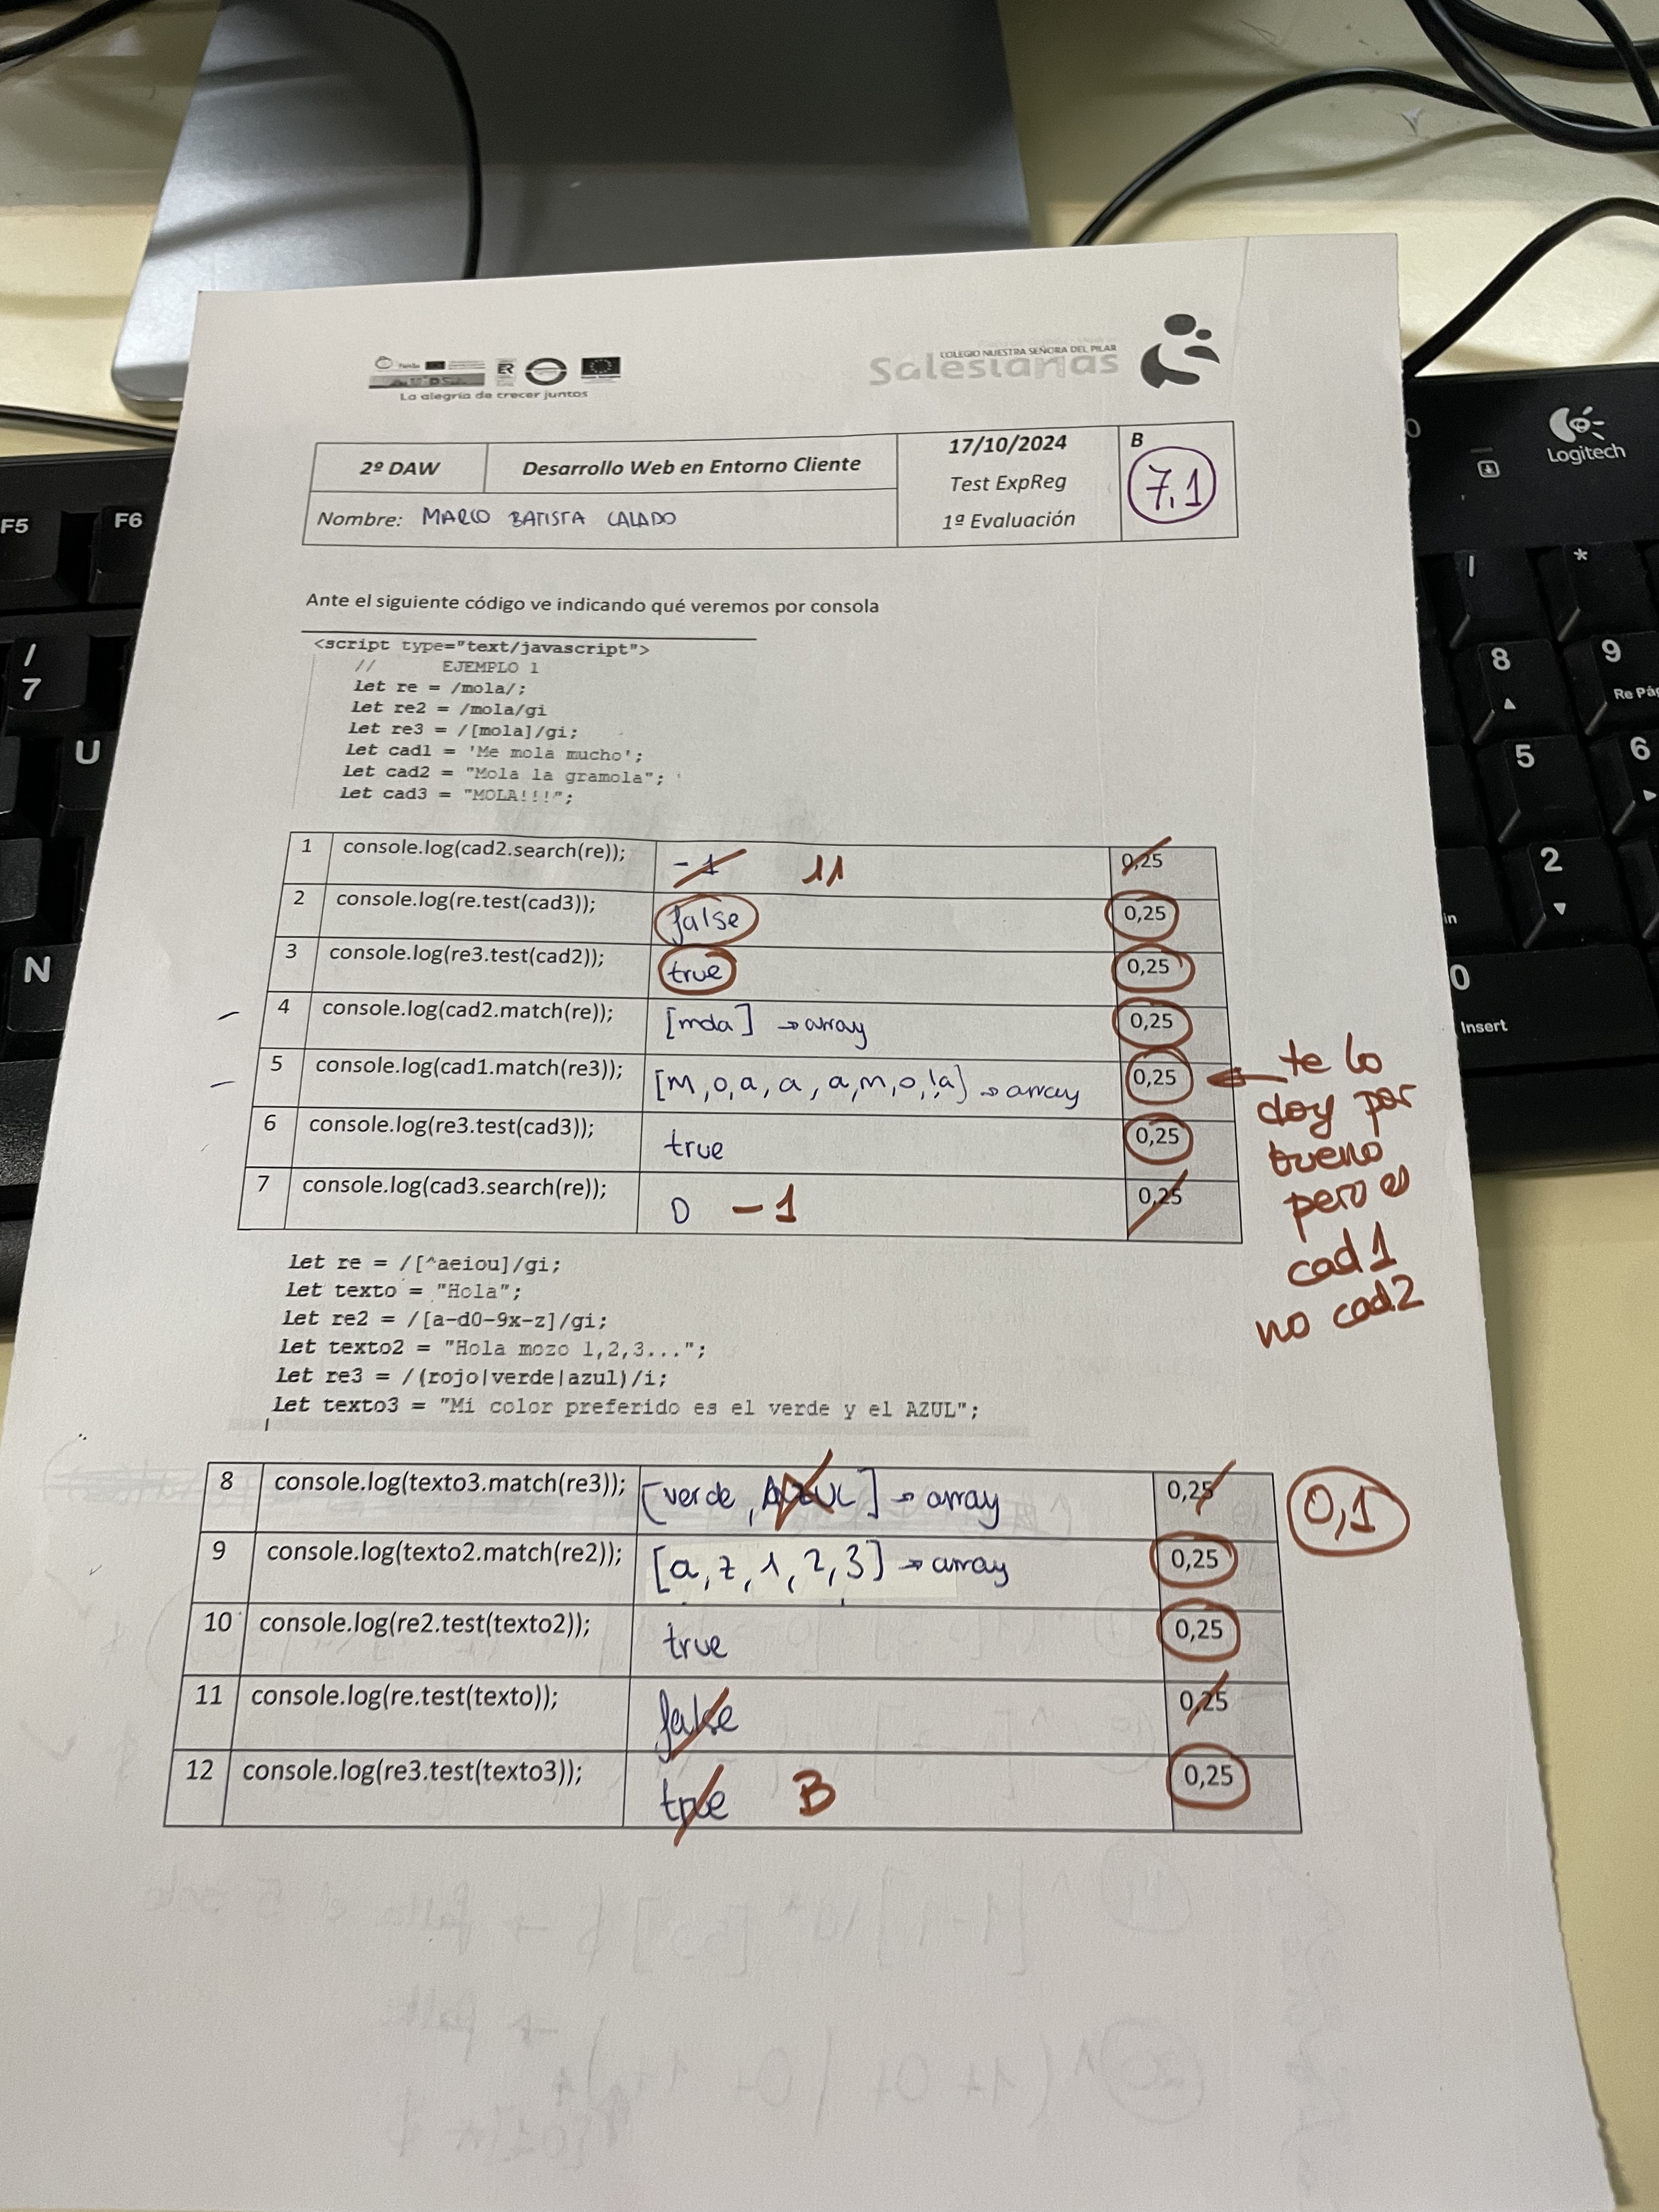 COLEGIO NUESTRA SEÑORA DEL PILAR
Salesianas
La alegría de crecer juntos
2º DAW
Desarrollo Web en Entorno Cliente
17/10/2024
Test ExpReg
1ª Evaluación
B
7,1
Nombre: MARCO BATISTA CALADO
Ante el siguiente código ve indicando qué veremos por consola
<script type="text/javascript">
// EJEMPLO 1
let re = /mola/;
let re2 = /mola/gi
let re3 = /[mola]/gi;
let cad1 = 'Me mola mucho';
let cad2 = "Mola la gramola";
let cad3 = "MOLA!!!";
1 console.log(cad2.search(re)); -1 11 0,25
2 console.log(re.test(cad3)); false 0,25
3 console.log(re3.test(cad2)); true 0,25
4 console.log(cad2.match(re)); [mola] → array 0,25
5 console.log(cad1.match(re3)); [M,o,a,a,a,m,o,l,a] → array 0,25
te lo
doy por
bueno
pero es
cad1
no cad2
6 console.log(re3.test(cad3)); true 0,25
7 console.log(cad3.search(re)); 0 -1 0,25
let re = /[^aeiou]/gi;
let texto = "Hola";
let re2 = /[a-d0-9x-z]/gi;
let texto2 = "Hola mozo 1,2,3...";
let re3 = /(rojo|verde|azul)/i;
let texto3 = "Mi color preferido es el verde y el AZUL";
8 console.log(texto3.match(re3)); [verde, AZUL] → array 0,25 0,1
9 console.log(texto2.match(re2)); [a,z,1,2,3] → array 0,25
10 console.log(re2.test(texto2)); true 0,25
11 console.log(re.test(texto)); false 0,25
12 console.log(re3.test(texto3)); true B 0,25
Logitech
F5
F6
/
7
U
N
/
*
8
9
Re Pág
5
6
2
0
Insert